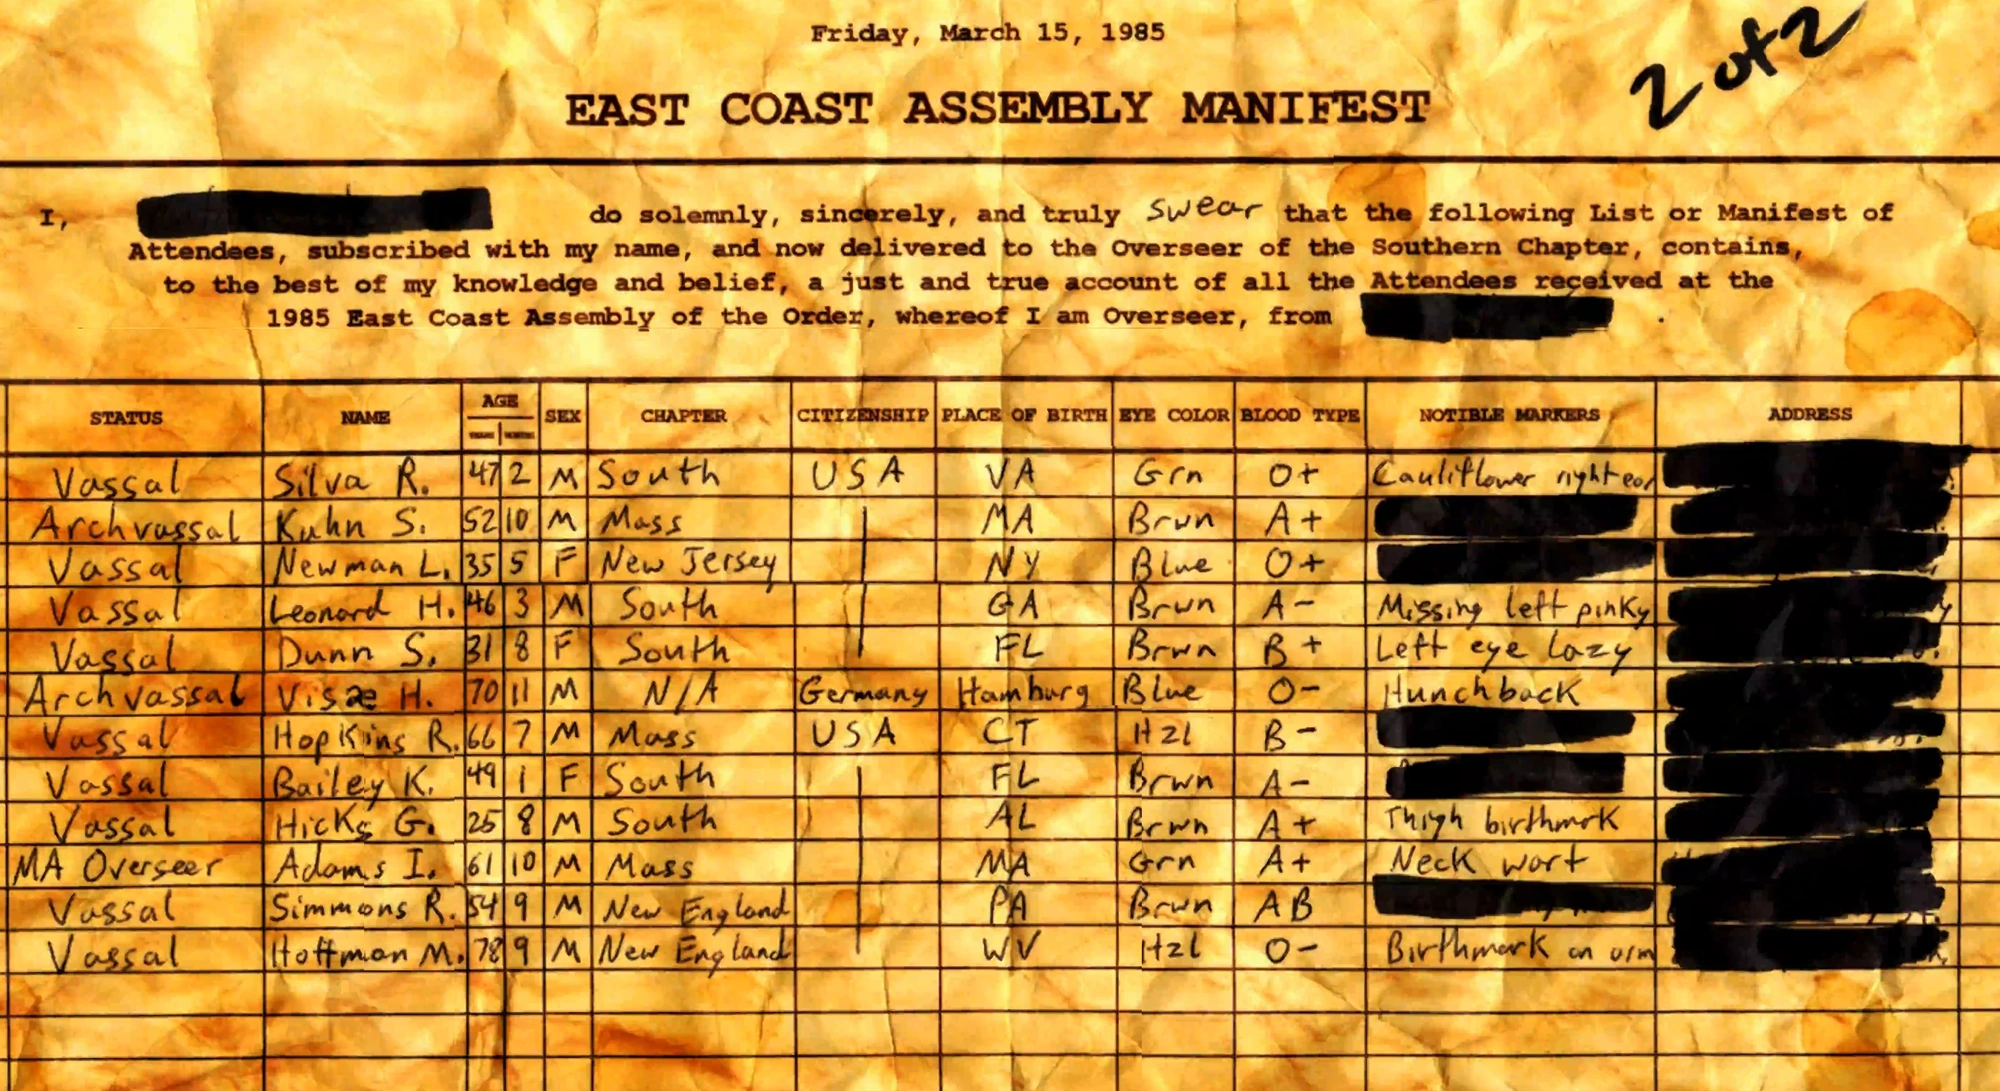 Friday, March 15, 1985
2 of 2
EAST COAST ASSEMBLY MANIFEST
I, do solemnly, sincerely, and truly swear that the following List or Manifest of
Attendees, subscribed with my name, and now delivered to the Overseer of the Southern Chapter, contains,
to the best of my knowledge and belief, a just and true account of all the Attendees received at the
1985 East Coast Assembly of the Order, whereof I am Overseer, from .
STATUS NAME AGE SEX CHAPTER CITIZENSHIP PLACE OF BIRTH EYE COLOR BLOOD TYPE NOTIBLE MARKERS ADDRESS
YEARS MONTHS
Vassal Silva R. 47 2 M South USA VA Grn O+ Cauliflower right ear
Archvassal Kuhn S. 52 10 M Mass MA Brwn A+
Vassal Newman L. 35 5 F New Jersey NY Blue O+
Vassal Leonard H. 46 3 M South GA Brwn A- Missing left pinky
Vassal Dunn S. 31 8 F South FL Brwn B+ Left eye lazy
Archvassal Visæ H. 70 11 M N/A Germany Hamburg Blue O- Hunchback
Vassal Hopkins R. 66 7 M Mass USA CT Hzl B-
Vassal Bailey K. 49 1 F South FL Brwn A-
Vassal Hicks G. 25 8 M South AL Brwn A+ Thigh birthmark
MA Overseer Adams I. 61 10 M Mass MA Grn A+ Neck wart
Vassal Simmons R. 54 9 M New England PA Brwn AB
Vassal Hoffman M. 78 9 M New England WV Hzl O- Birthmark on arm